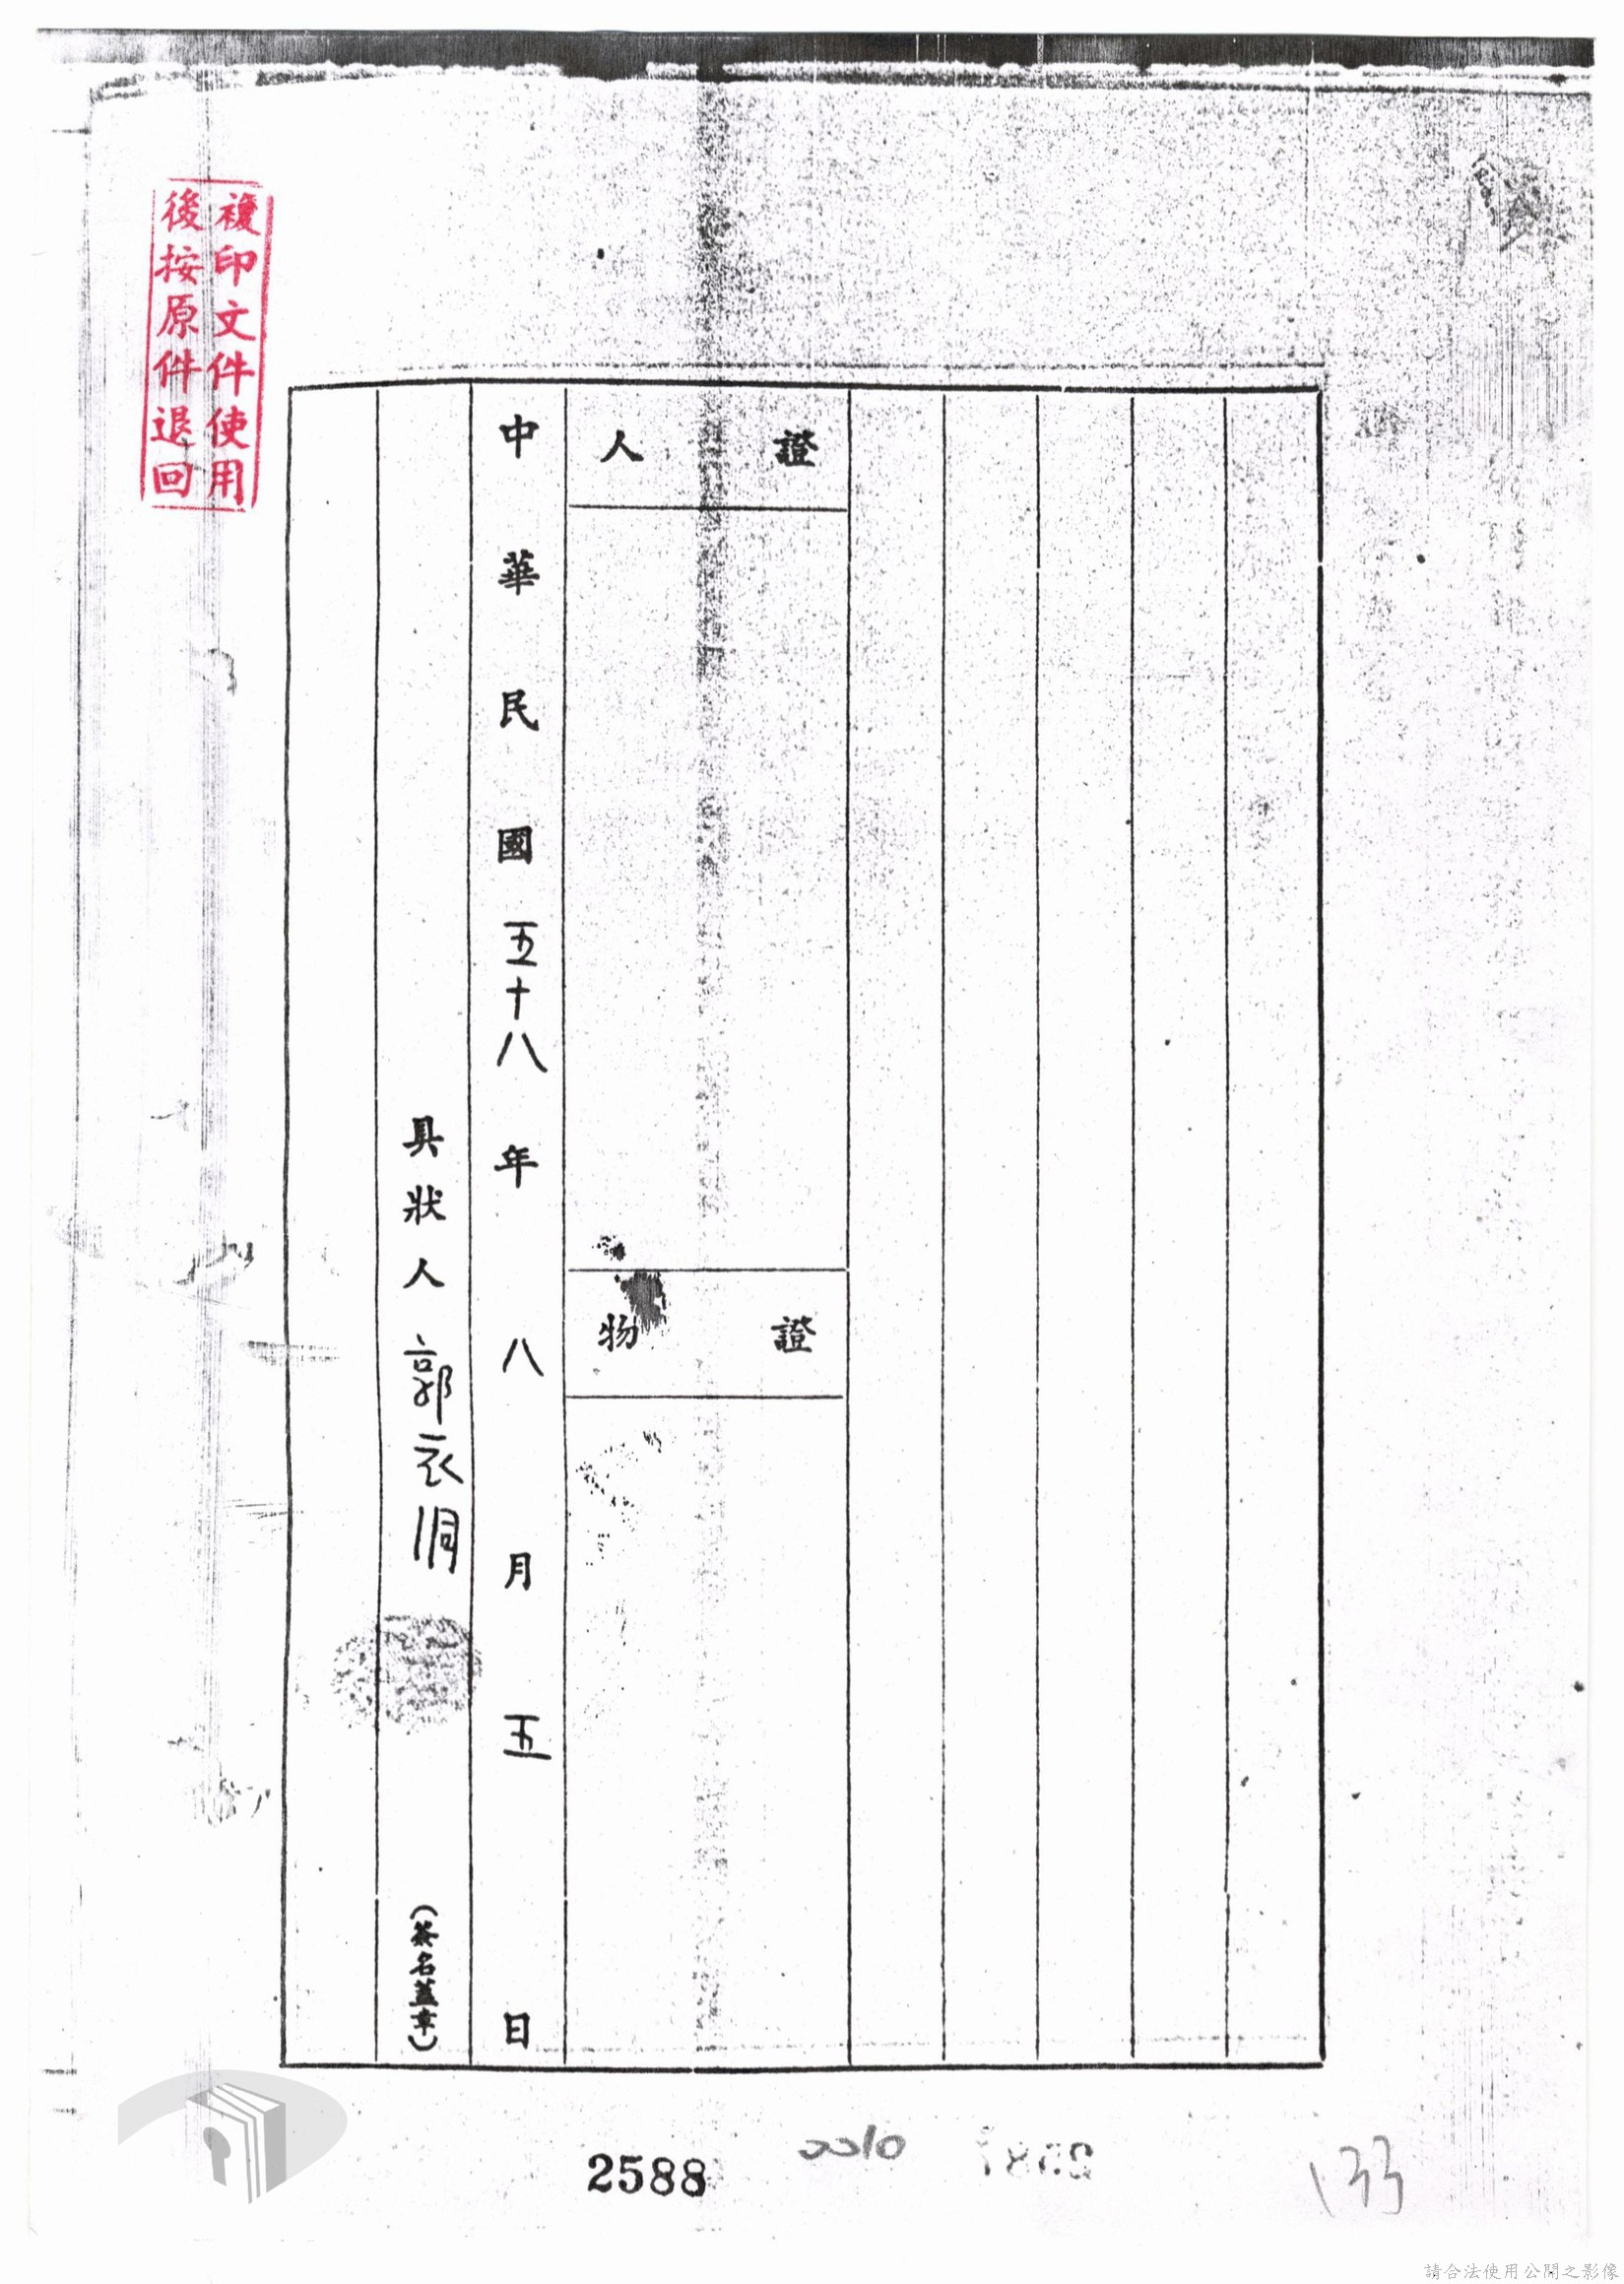 複印文件使用
後按原件退回
證人
證物
中華民國五十八年八月五日
具狀人 郭衣洞 (簽名蓋章)
2588
0010
133
請合法使用公開之影像